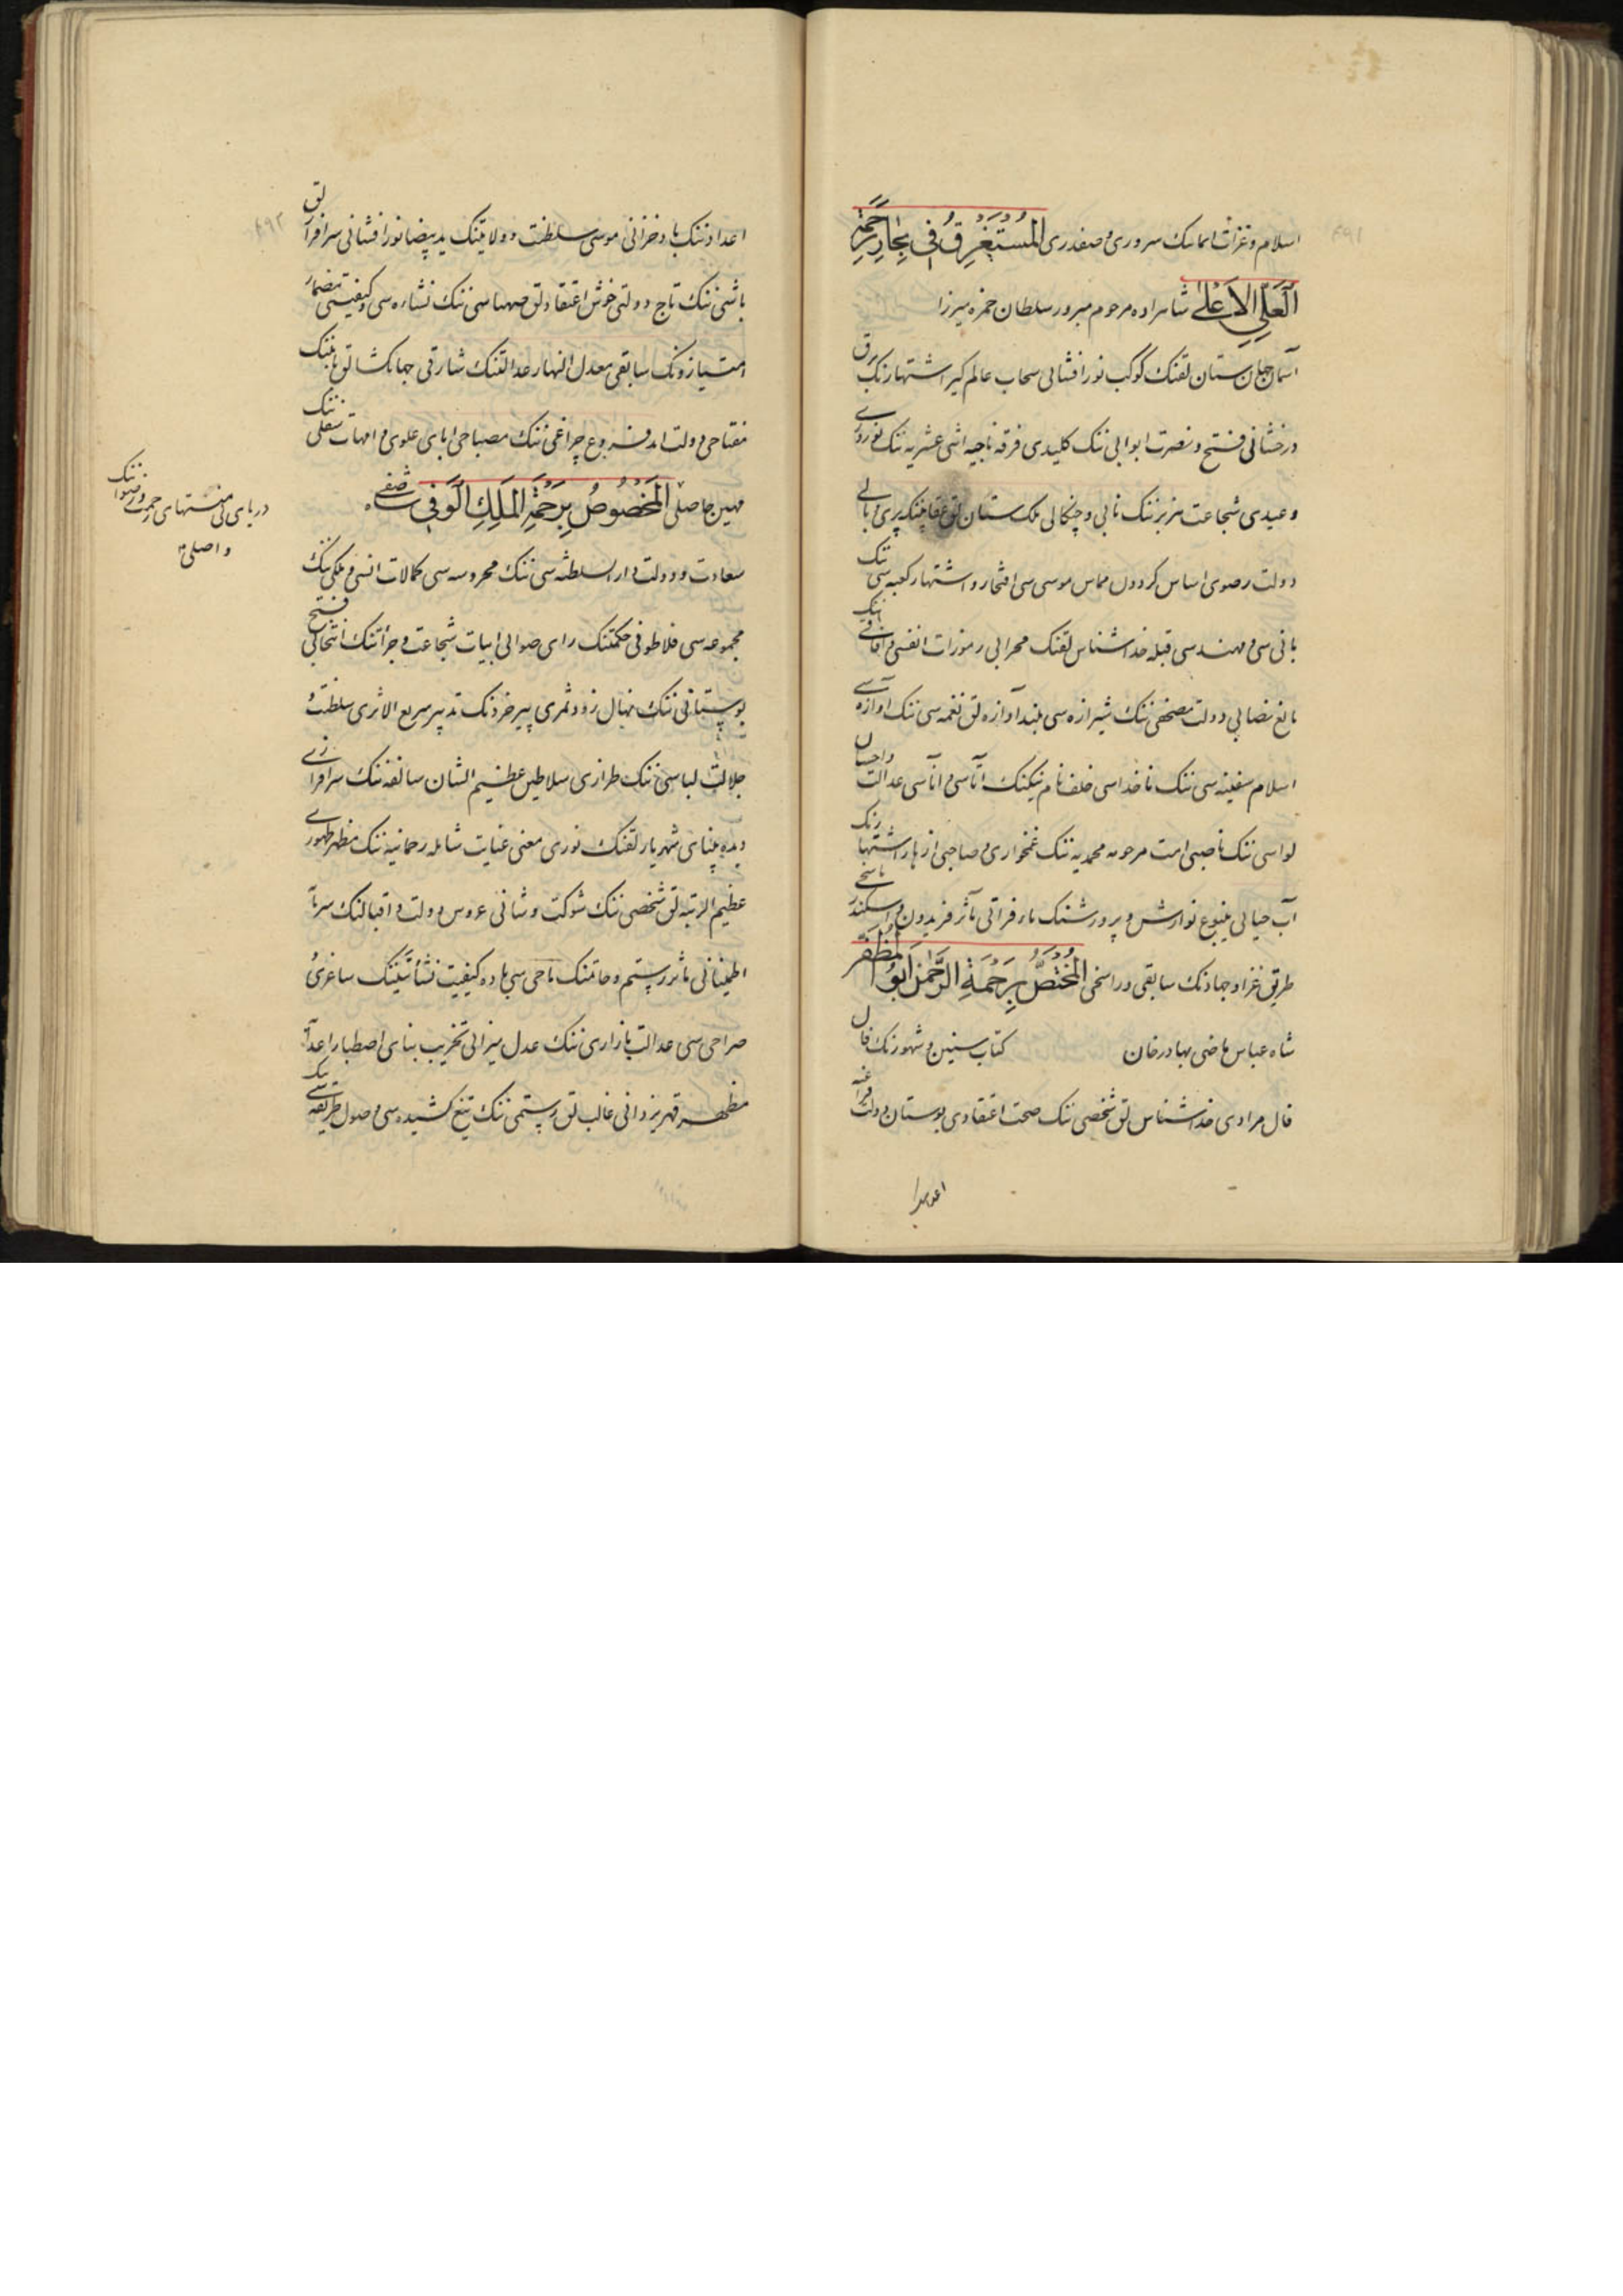 اسلام و غزات اسلامنک سروری و صفدری المستغرق فی بحار رحمة
العلی الاعلی شاهزاده مرحوم مبرور سلطان حمزه میرزا
آسمان جهان ستان لقنک کوکب نورافشانی سحاب عالم کیر اشتهارنک برق
درخشانی فتح و نصرت ابوابی ننک کلیدی فرقه ناجیه اثنی عشریه ننک نوروزی
و عیدی شجاعت هزبرننک نابی و چنکالی ملک ستان لق عنقاسننک پری و بالی
دولت رضوی اساس کردون مماس موسی سی افتخار و اشتهار کعبه سی ننک
بانی سی و مهندسی قبله خداشناس لقنک محرابی رموزات انفسی و آفاقی
بالغ نصابی دولت مصحفی ننک شیرازه سی بلند آوازه لق نغمه سی ننک آوازه سی
اسلام سفینه سی ننک ناخداسی خلف نام نیکنک آتاسی و اناسی عدالت و احسان
لواسی ننک ناصبی امت مرحومه محمدیه ننک غمخواری و صاحبی ازهار اشتهارنک
آب حیاتی ینبوع نوازش و پرورشنک ماء فراتی مآثر فریدون و اسکندر ناسخی
طریق غزا و جهادنک سابقی و راسخی المختص برحمة الرحمن ابو المظفر
شاه عباس ماضی بهادر خان کتاب سنین و شهورنک فال
فال مرادی خداشناس لق شخصی ننک صحت اعتقادی بوستان دولت
اعدا
اعدادننک باد خزانی موسی سلطنت و ولایتنک ید بیضا نورافشانی سرافراز لق
باشی ننک تاج دولتی خوش اعتقادلق صهباسی ننک نشاره سی و کیفیتی مضمار
امتیازونک سابقی معدل النهار عدالتنک شارقی جهانکشالق
مفتاحی دولت ابد فروغ چراغی ننک مصباحی ابای علوی و امهات سفلی ننک
مهین حاصلی المخصوص برحمة الملک الوفی شاه صفی
دریای بی منتهای رحمت و رضوان ننک
واصلی
سعادت و دولت دار السلطنه سی ننک محروسه سی کمالات انسی و ملکی ننک
مجموعه سی فلاطونی حکمتنک رای صوابی ابیات شجاعت و جرأتنک انتخابی فتح
بوستانی ننک نهال زود ثمری پیر خردنک تدبیر سریع الاثری سلطنت و
جلالت لباسی ننک طرازی سلاطین عظیم الشان سالفه ننک سرافرازی
دیده بینای شهریارلقنک نوری معنی عنایت شامله رحمانیه ننک مظهر ظهوری
عظیم الرتبه لق شخصی ننک شوکت و شانی عروس دولت و اقبالنک
اطمینانی مآثر رستم و حاتمنک ماحی سی باده کیفیت نشأتینک ساغری و
صراحی سی عدالت بازاری ننک عدل میزانی تخریب بنای اصطبار اعدانک
مظهر قهر یزدانی غالب لق رستمی ننک تیغ کشیده سی وصول طریقه سی